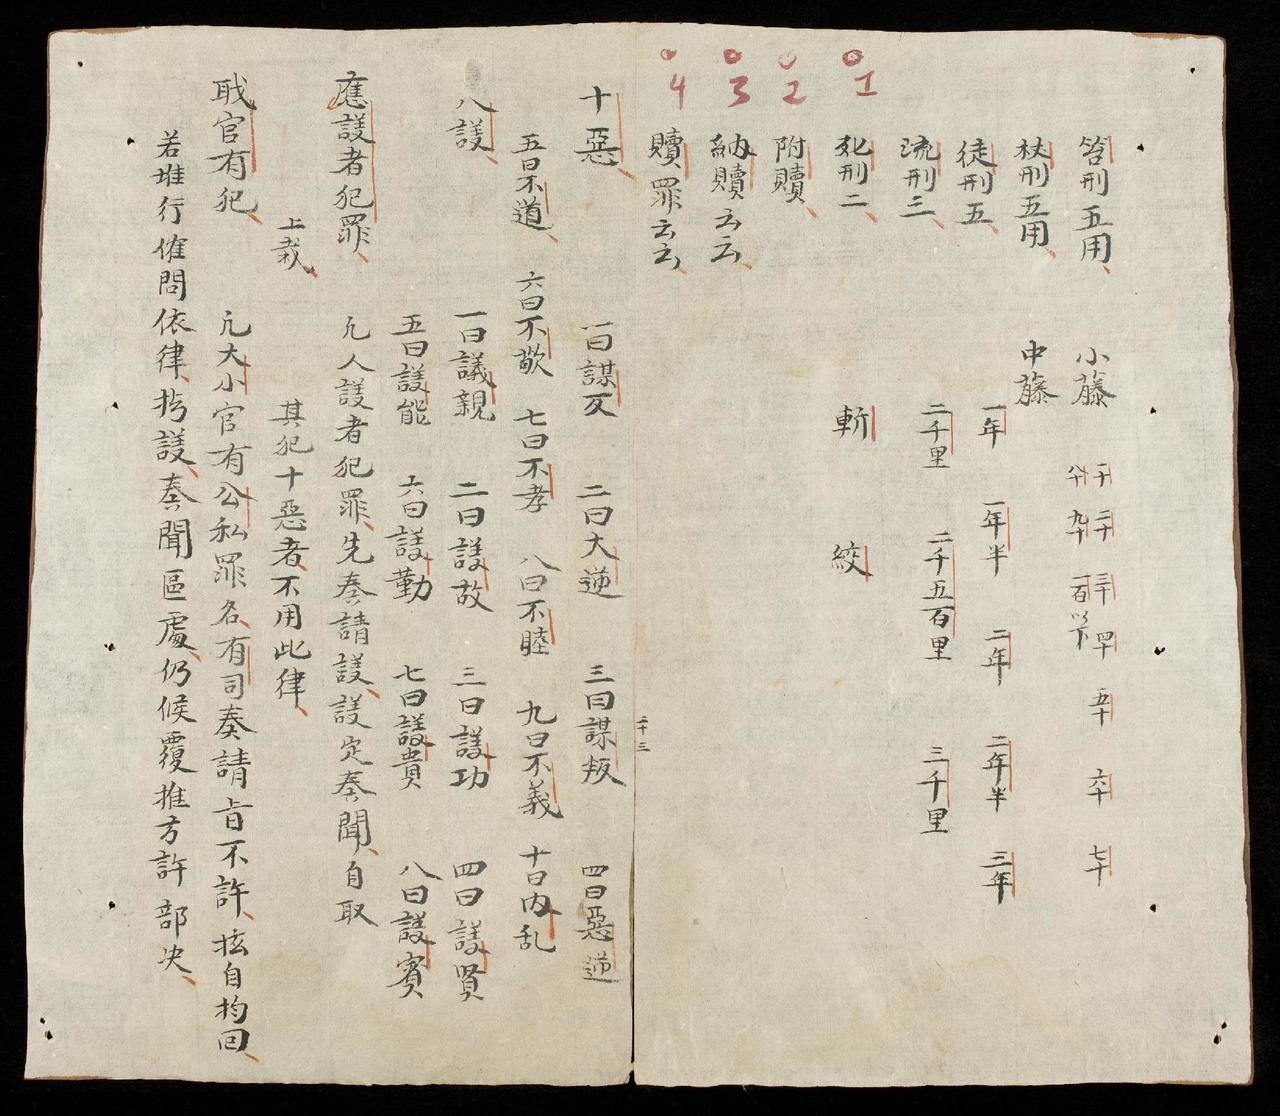 1
2
3
4
笞刑五用 小藤 一十 二十 三十 四十 五十 六十 七十
八十 九十 一百 以下
杖刑五用 中藤
徒刑五 一年 一年半 二年 二年半 三年
流刑三 二千里 二千五百里 三千里
死刑二 斬 絞
附贖
納贖云云
贖罪云云
二十三
十惡 一曰謀反 二曰大逆 三曰謀叛 四曰惡逆
五曰不道 六曰不敬 七曰不孝 八曰不睦 九曰不義 十曰内乱
八議 一曰議親 二曰議故 三曰議功 四曰議賢
五曰議能 六曰議勤 七曰議貴 八曰議賓
應議者犯罪 凡人議者犯罪先奏請議議定奏聞自取
上裁 其犯十惡者不用此律
耺官有犯 凡大小官有公私罪名有司奏請旨不許擅自拘回
若准行催問依律拘議奏聞區處仍候覆推方許部决